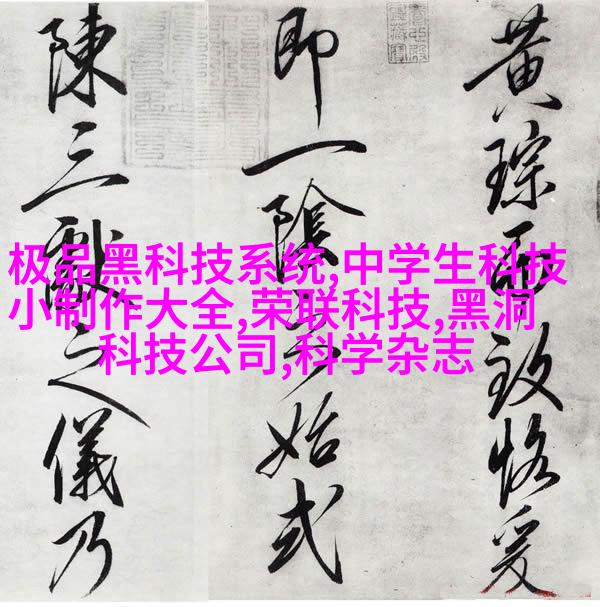 极品黑科技系统,中学生科技
小制作大全,荣联科技,黑洞
科技公司,科学杂志
黄琮而致恪爰
即一陰之始式
陳三獻之儀乃